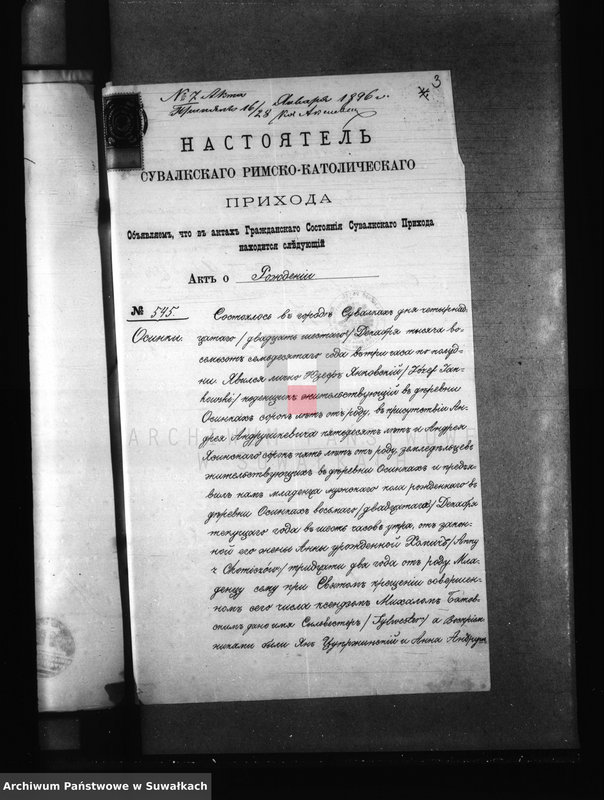 3
№ 7 Акта
Принято 16/28 Января 1896 г.
НАСТОЯТЕЛЬ
СУВАЛКСКАГО РИМСКО-КАТОЛИЧЕСКАГО
ПРИХОДА
Объявляемъ, что въ актахъ Гражданскаго Состоянія Сувалкскаго Прихода
находится слѣдующій
Актъ о Рожденіи
№ 545.
Осинки.
Состоялось въ городѣ Сувалкахъ дня четырнад-
цатаго /двадцать шестаго/ Декабря тысяча во-
семьсотъ семьдесятаго года въ три часа по полуд-
ни. Явился лично Юзефъ Янковскій /Józef Jan-
kowski/ поденщикъ жительствующій въ деревни
Осинкахъ сорокъ лѣтъ отъ роду, въ присутствіи Ан-
дрея Андрушкевича пятьдесятъ лѣтъ и Андрея
сорокъ пять лѣтъ отъ роду, земледѣльцевъ
жительствующихъ въ деревни Осинкахъ и предъя-
вилъ намъ младенца мужскаго пола рожденнаго въ
деревни Осинкахъ восьмаго /двадцатаго/ Декабря
текущаго года въ шесть часовъ утра, отъ закон-
ной его жены Анны урожденной Хомичъ /Anny
z Chomiczów/ тридцати два года отъ роду. Мла-
денцу сему при Святомъ крещеніи совершен-
номъ сего числа ксендзомъ Михаломъ
дано имя Сильвестеръ /Sylwester/ а Воспріем-
никами были Янъ и Анна
ARCHIWUM PAŃSTWOWE
W SUWAŁKACH
Archiwum Państwowe w Suwałkach